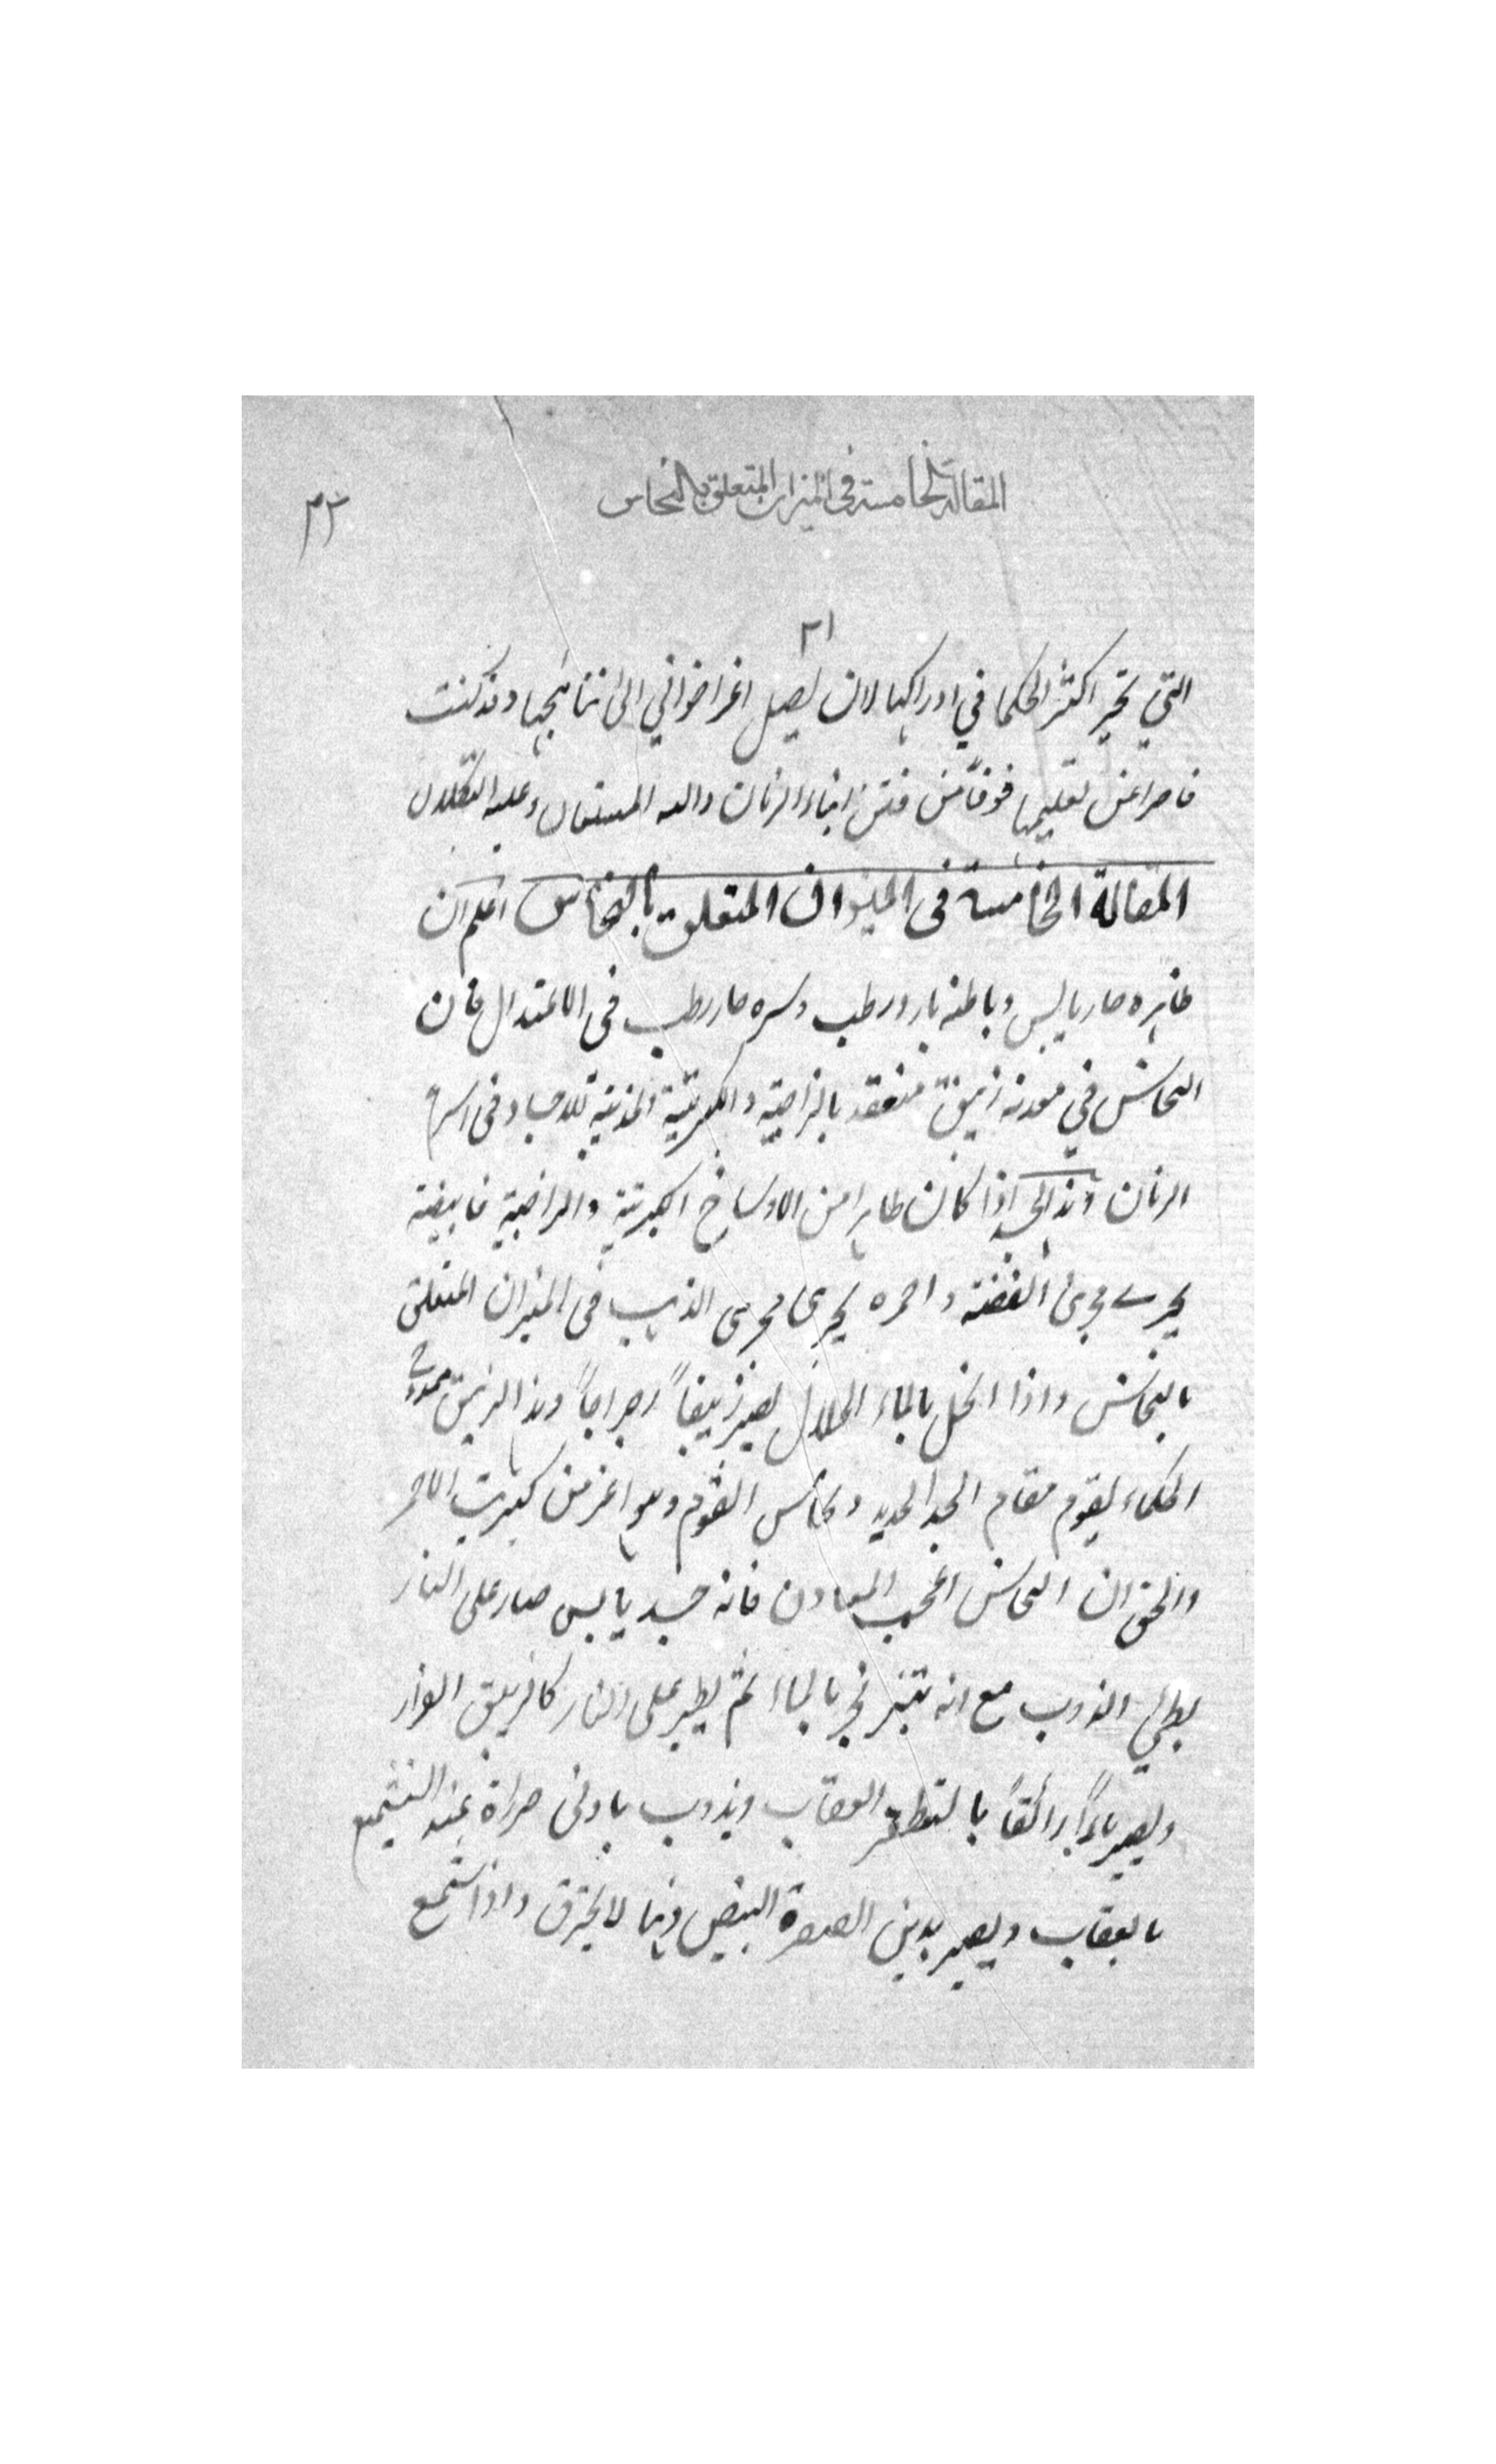 المقالة الخامسة في الميزان المتعلق بالنحاس
٢٢
٢١
التي تحير اكثر الحكما في ادراكها لان يصل اغراضواني الى نتائجها وقد كنت
قاصرا عن تعليمها خوفاً من فتن ابناء الزمان والله المستعان وعليه التكلان
المقالة الخامسة في الميزان المتعلق بالنحاس اعلم ان
ظاهره حار يابس وباطنه بارد رطب وسره حار رطب في الاعتدال فان
النحاس في معدنه زيبق منعقد بالزاجية والكبريتية المذيبة للاجساد في اسرع
الزمان وبذالك اذا كان طاهرا من الاوساخ الكبريتية والزاجية فابيضه
يجرى مجرى الفضة واحمره يجرى مجرى الذهب في الميزان المتعلق
بالنحاس واذا انحل بالماء الحلال يصير زيبقاً رجراجاً وهذا الزيبق ممدوح
الحكماء يقوم مقام الجد الحديد ونحاس القوم وهو اعز من كبريت الاحمر
والحق ان النحاس اعجب المعادن فانه جسد يابس صار على النار
بطيئ الذوب مع انه يتبخر بالماء ثم يطير على النار كالزيبق الفرار
ويصير ماءً رائقاً بالتقطير العقاب ويذوب بادنى حرارة عند التشميع
بالعقاب ويصير بدين الصورة البيض دهنا لا يحترق واذا شمع